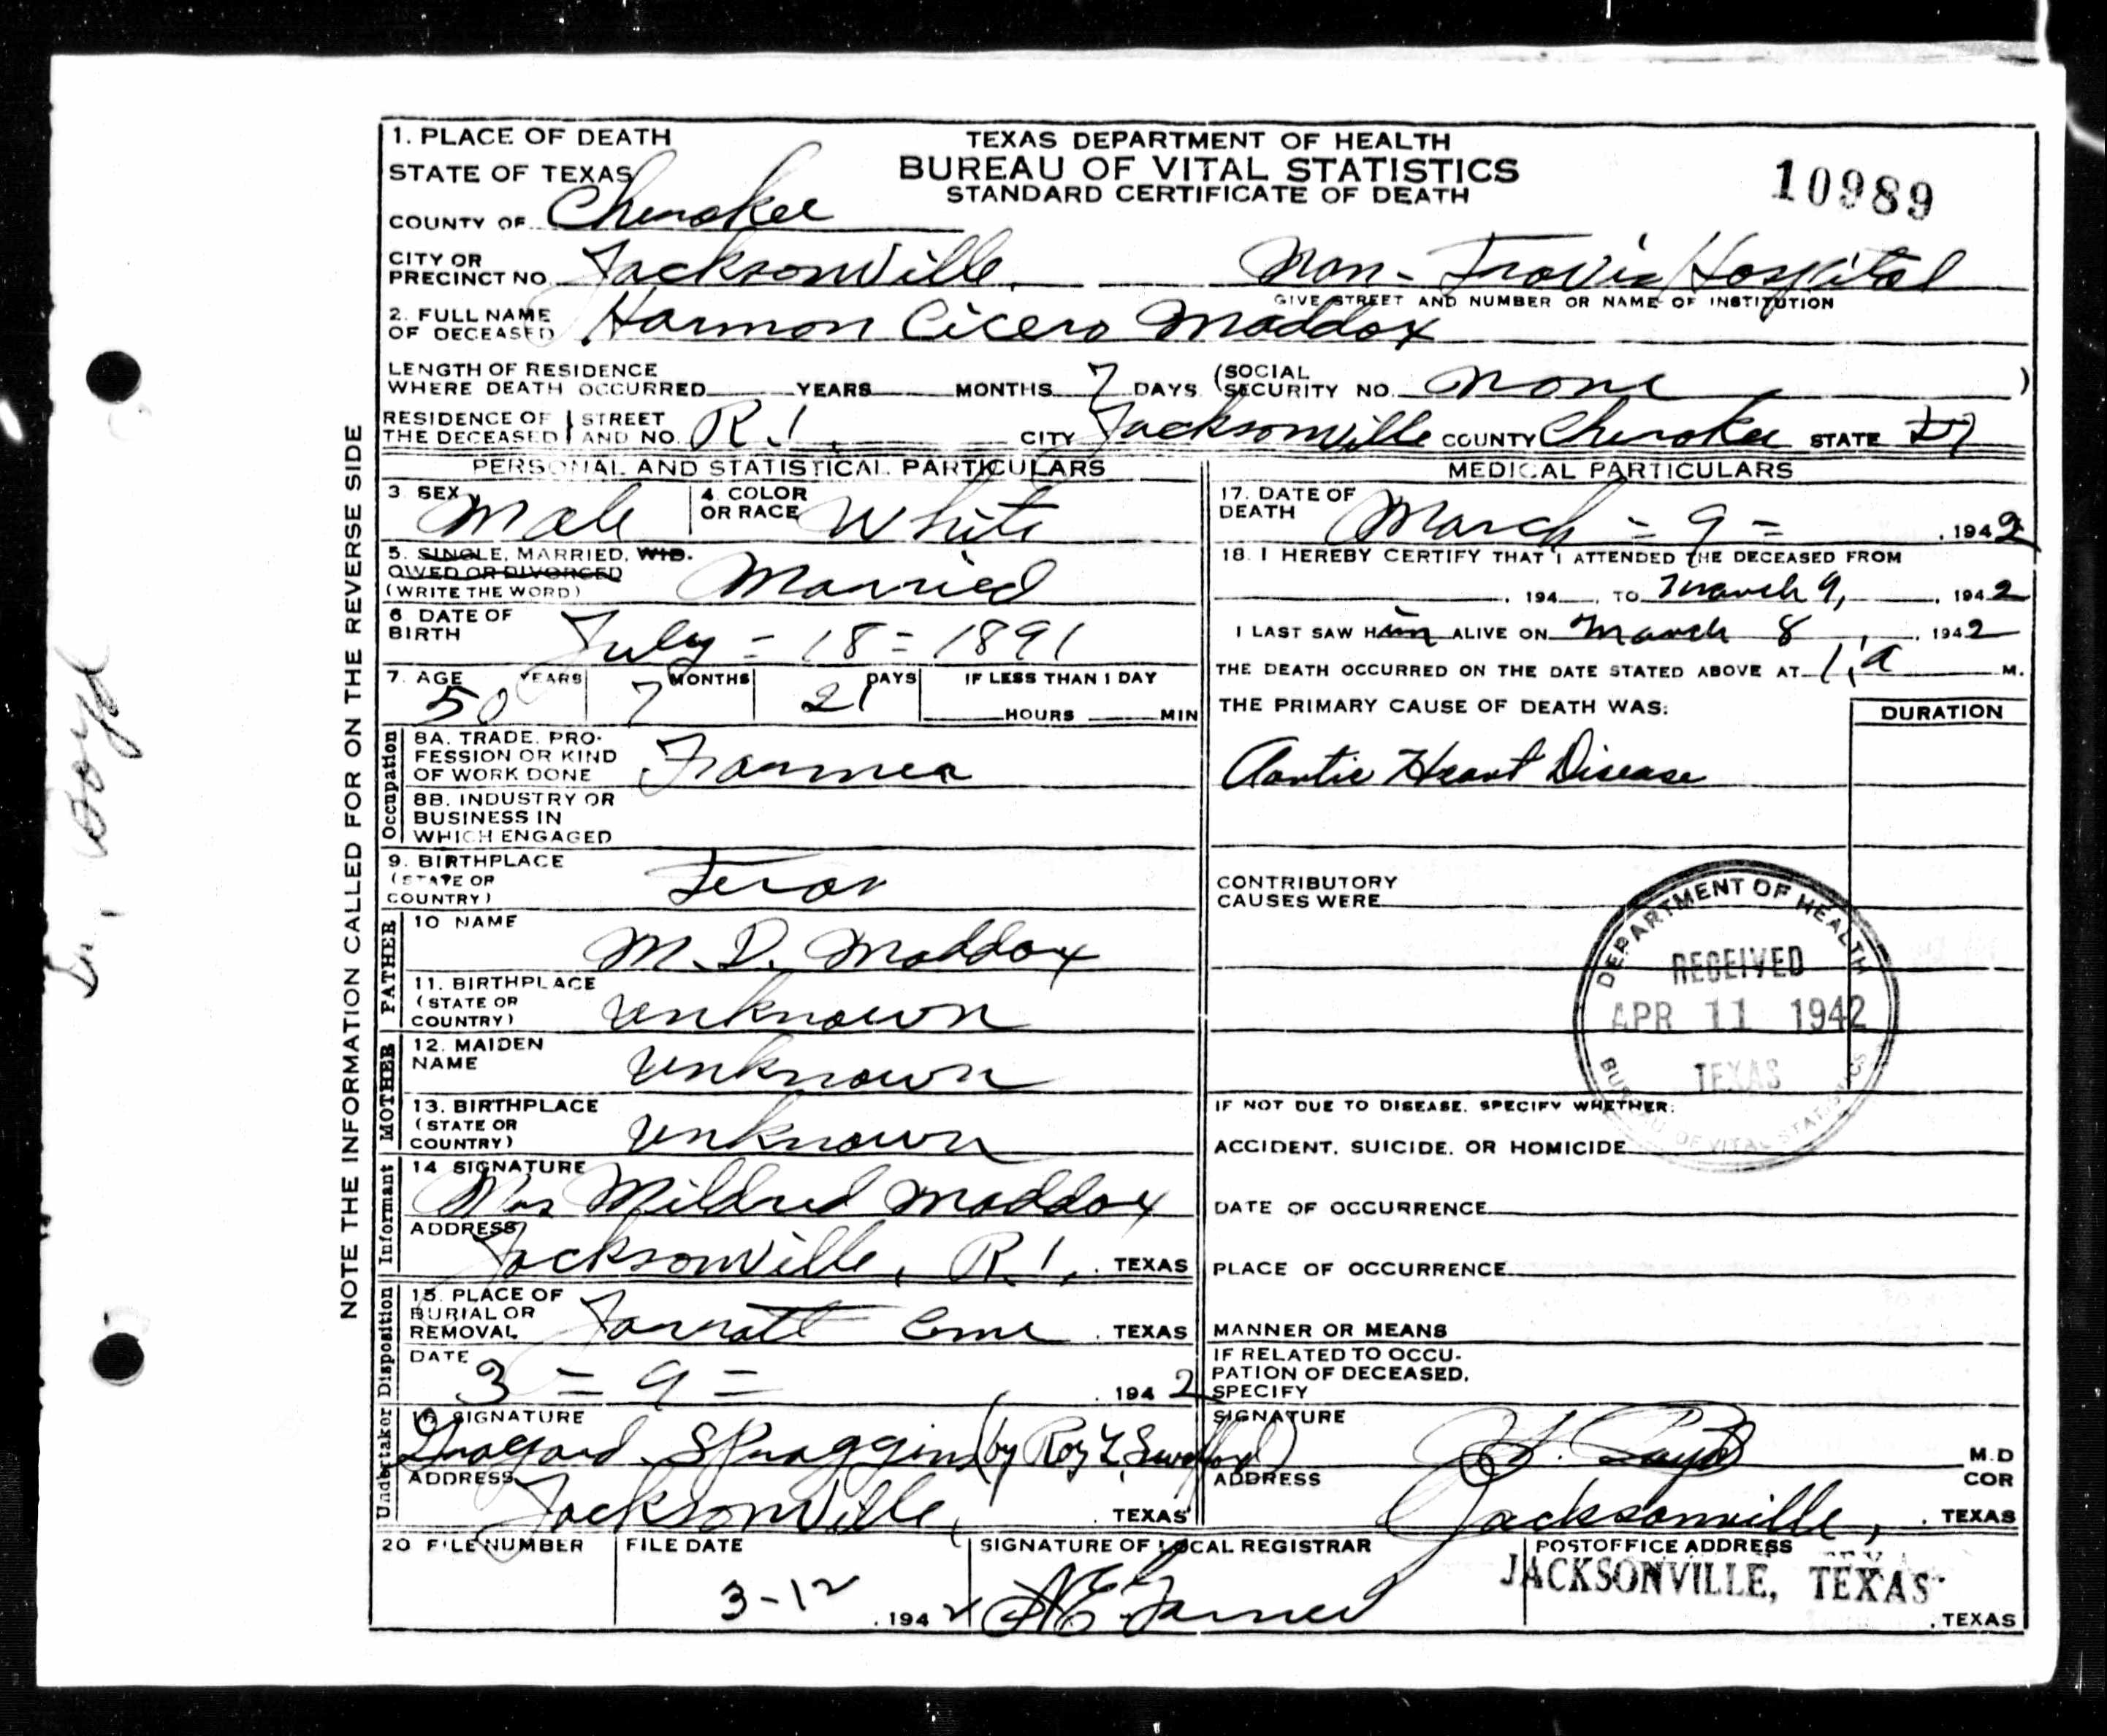 1. PLACE OF DEATH
TEXAS DEPARTMENT OF HEALTH
BUREAU OF VITAL STATISTICS
STANDARD CERTIFICATE OF DEATH
10989
STATE OF TEXAS
COUNTY OF Cherokee
CITY OR PRECINCT NO. Jacksonville, Nan-Travis Hospital
GIVE STREET AND NUMBER OR NAME OF INSTITUTION
2. FULL NAME OF DECEASED Harmon Cicero Maddox
LENGTH OF RESIDENCE WHERE DEATH OCCURRED YEARS MONTHS 7 DAYS (SOCIAL SECURITY NO. None )
RESIDENCE OF THE DECEASED STREET AND NO. R.1, CITY Jacksonville COUNTY Cherokee STATE
PERSONAL AND STATISTICAL PARTICULARS
3. SEX Male 4. COLOR OR RACE White
5. SINGLE, MARRIED, WID-
OWED OR DIVORCED
(WRITE THE WORD) Married
6 DATE OF BIRTH July = 18 = 1891
7. AGE YEARS MONTHS DAYS IF LESS THAN 1 DAY
50 7 21 HOURS MIN
Occupation
8A. TRADE, PRO-
FESSION OR KIND
OF WORK DONE
8B. INDUSTRY OR
BUSINESS IN
WHICH ENGAGED
9. BIRTHPLACE
(STATE OR
COUNTRY) Texas
FATHER
10 NAME M. D. Maddox
11. BIRTHPLACE
(STATE OR
COUNTRY) unknown
MOTHER
12. MAIDEN
NAME unknown
13. BIRTHPLACE
(STATE OR
COUNTRY) unknown
Informant
14 SIGNATURE
Mrs Mildred Maddox
ADDRESS
Jacksonville, R.1, TEXAS
Disposition
15. PLACE OF
BURIAL OR
REMOVAL Jarratt Cem . TEXAS
DATE 3 = 9 = , 1942
Undertaker
16 SIGNATURE
Spraggins (by Roy
ADDRESS
Jacksonville, TEXAS
MEDICAL PARTICULARS
17. DATE OF
DEATH March = 9 = , 1942
18. I HEREBY CERTIFY THAT I ATTENDED THE DECEASED FROM
, 194 , TO March 9, , 1942
I LAST SAW Him ALIVE ON March 8, , 1942
THE DEATH OCCURRED ON THE DATE STATED ABOVE AT 1,a M.
THE PRIMARY CAUSE OF DEATH WAS: DURATION
Aortic Heart Disease
CONTRIBUTORY
CAUSES WERE
DEPARTMENT OF HEALTH
RECEIVED
APR 11 1942
TEXAS
BUREAU OF VITAL STATISTICS
IF NOT DUE TO DISEASE, SPECIFY WHETHER:
ACCIDENT, SUICIDE, OR HOMICIDE
DATE OF OCCURRENCE
PLACE OF OCCURRENCE
MANNER OR MEANS
IF RELATED TO OCCU-
PATION OF DECEASED,
SPECIFY
SIGNATURE Boyd M.D
ADDRESS COR
Jacksonville, . TEXAS
20 FILE NUMBER FILE DATE SIGNATURE OF LOCAL REGISTRAR POSTOFFICE ADDRESS
3-12 , 1942
JACKSONVILLE, TEXAS.
, TEXAS
NOTE THE INFORMATION CALLED FOR ON THE REVERSE SIDE
Dr. Boyd